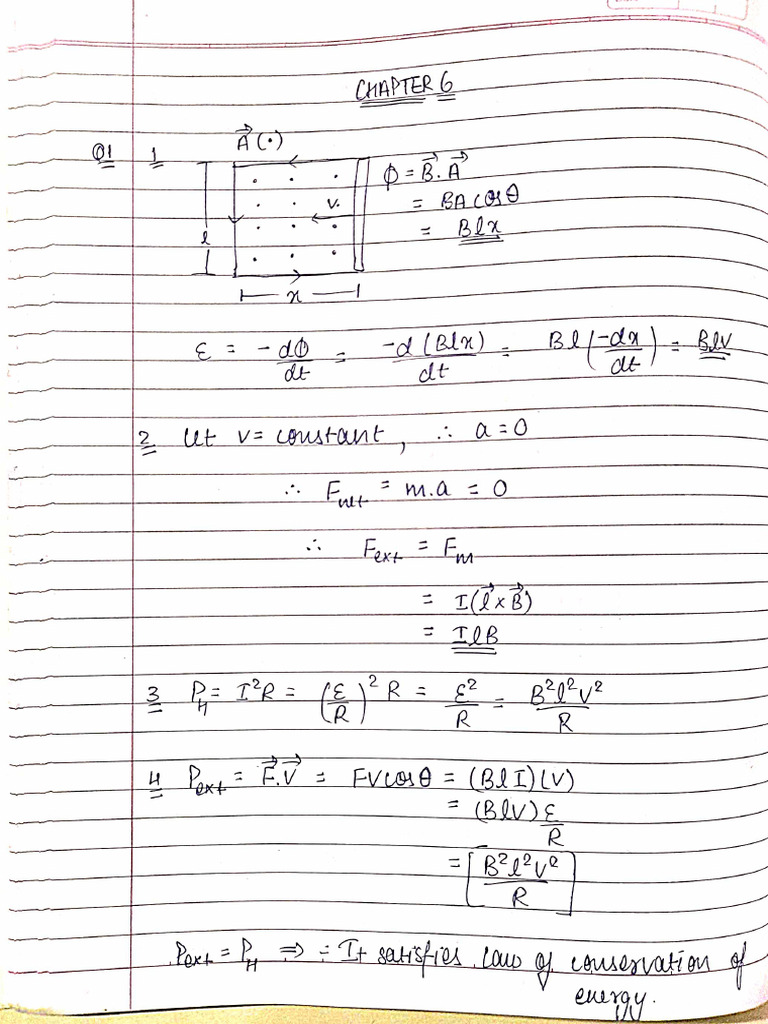 CHAPTER 6
Q1 1 A⃗ (·)
ϕ = B⃗ . A⃗
= BA cosθ
v.
= Blx
l
x
ε = -dϕ/dt = -d(Blx)/dt = Bl(-dx/dt) = Blv
2 Let v = constant, ∴ a = 0
∴ Fnet = m.a = 0
∴ Fext = Fm
= I(l⃗ × B⃗)
= IlB
3 PH = I²R = (ε/R)² R = ε²/R = B²l²v²/R
4 Pext = F⃗.V⃗ = FV cosθ = (BlI)(v)
= (Blv) ε/R
= B²l²v²/R
Pext = PH ⇒ :- It satisfies law of conservation of
energy.